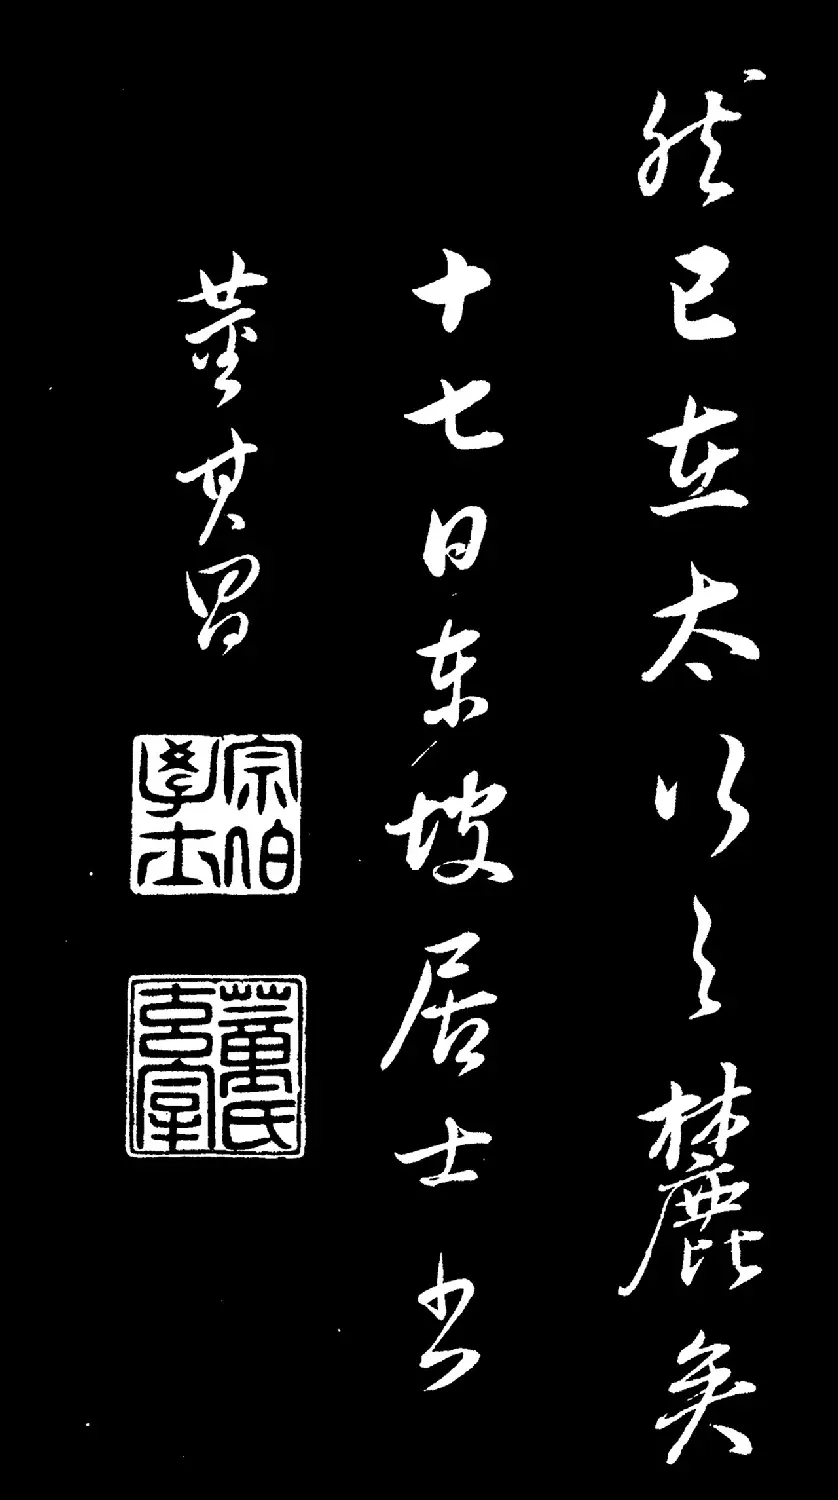 然已在太行之麓矣
十七日東坡居士書
董其昌
宗伯學士
董氏玄宰